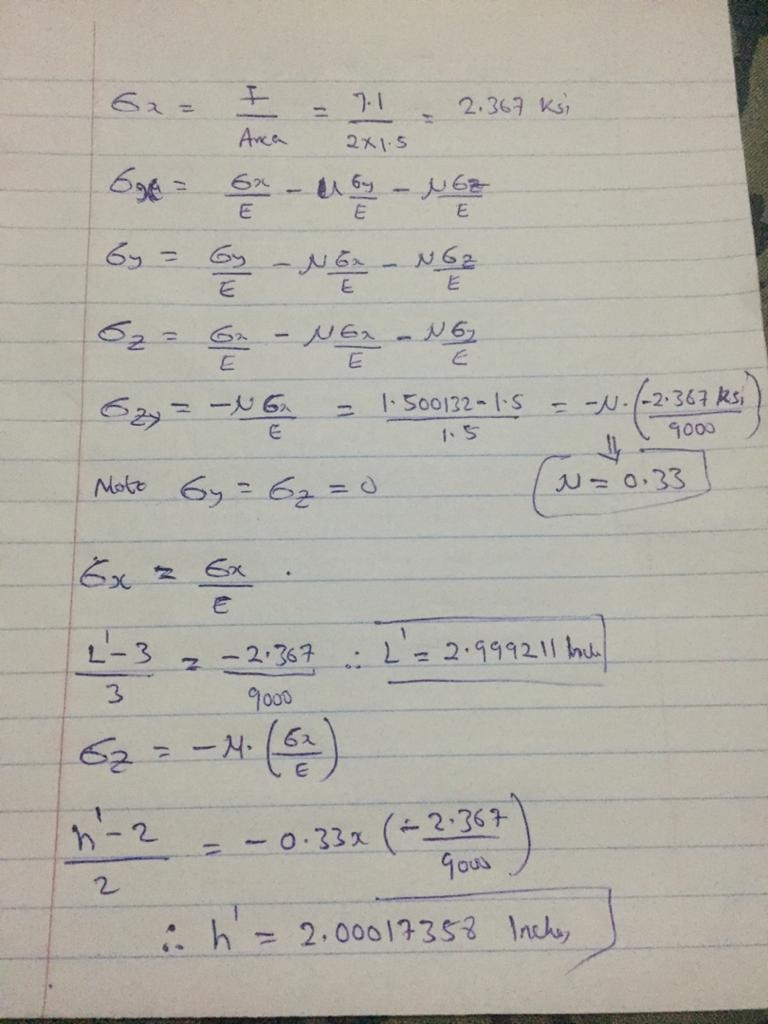 σx = I/Area = 7.1/2×1.5 = 2.367 ksi
σx = σx/E - N σy/E - N σz/E
σy = σy/E - N σx/E - N σz/E
σz = σx/E - N σx/E - N σy/E
σzy = -N σx/E = 1.500132-1.5/1.5 = -N. (-2.367 ksi/9000)
⇓
Note σy = σz = 0 N = 0.33
σx = σx/E .
L'-3/3 = -2.367/9000 ∴ L' = 2.999211 Inch
σz = -M. (σx/E)
h'-2/2 = -0.33x (-2.367/9000)
∴ h' = 2.00017358 Inches